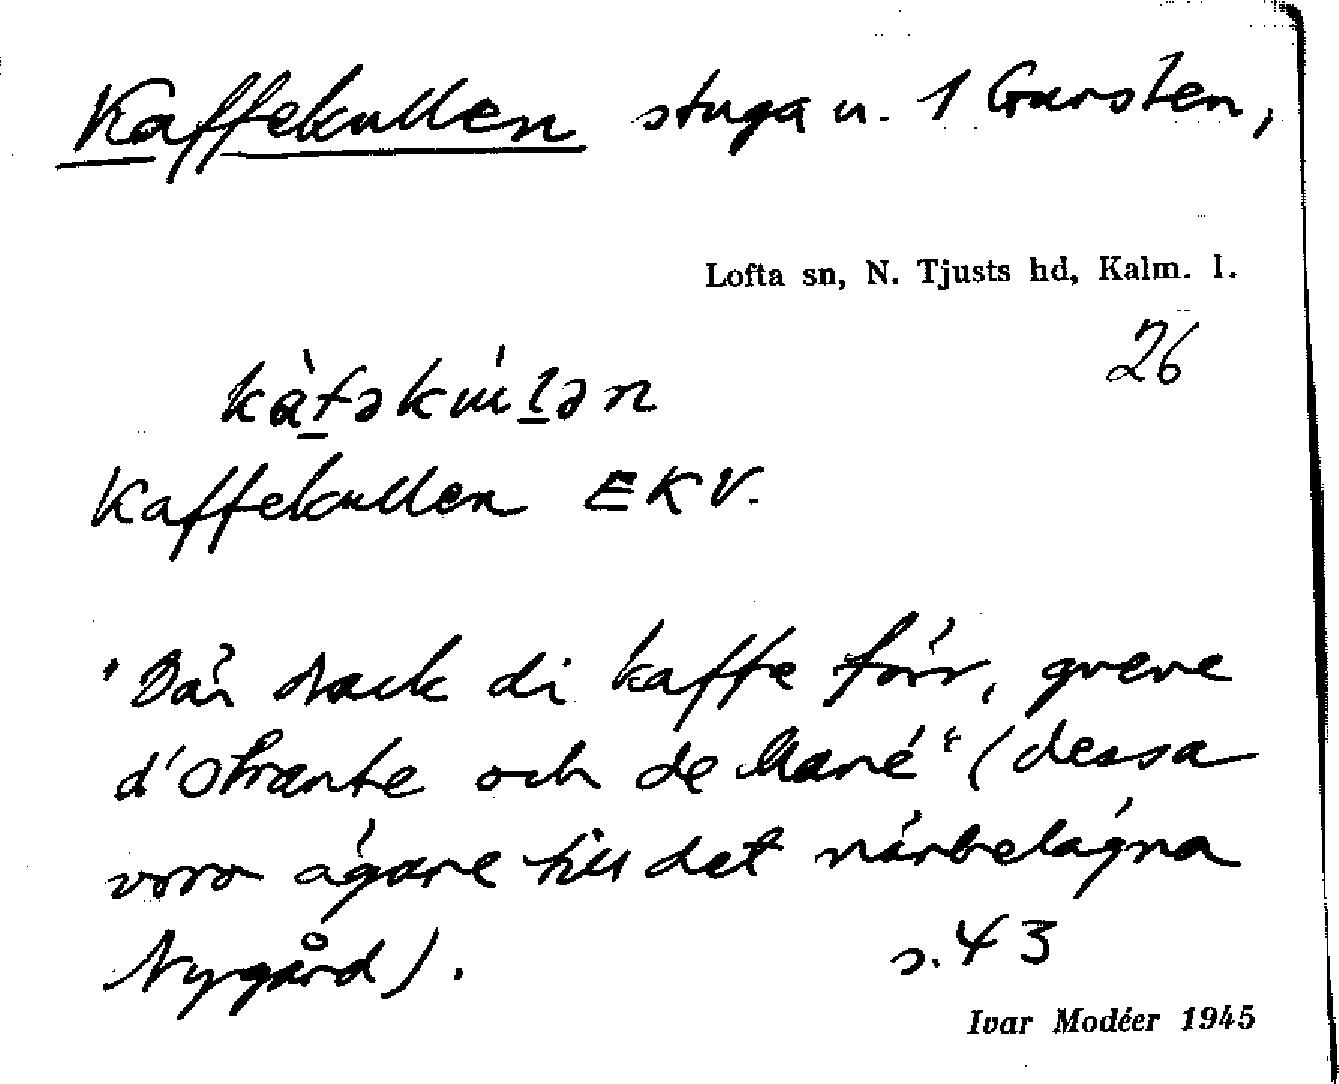 Kaffekullen stuga u. 1 Gursten,
Lofta sn, N. Tjusts hd, Kalm. l.
26
kàf̲əkúl̲ən
Kaffekullen EKV.
"Där drack di kaffe förr, greve
d'Otrante och de Maré" (dessa
voro ägare till det närbelägna
Nygård).
s. 43
Ivar Modéer 1945